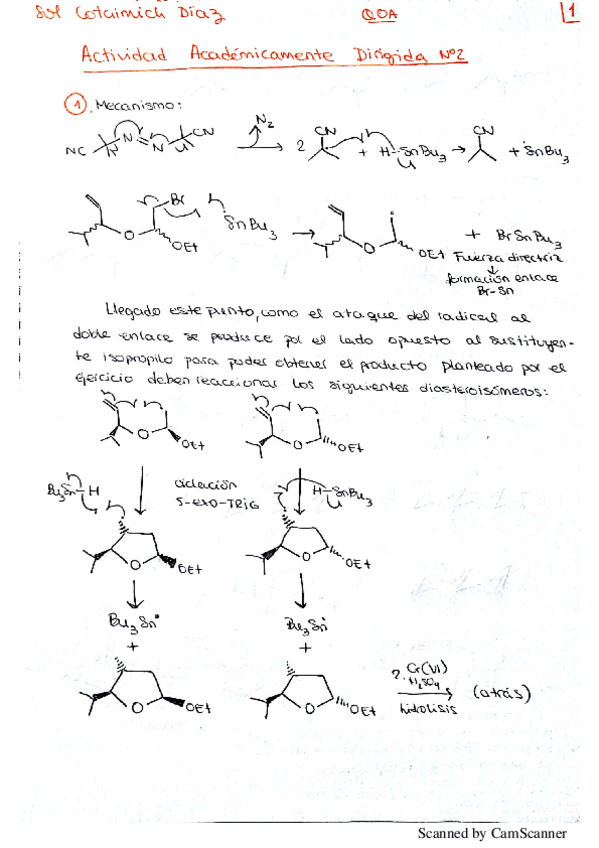 Sol Cotaimich Díaz QOA 1
Actividad Académicamente Dirigida Nº2
1. Mecanismo:
NC N=N CN N2 2 CN + H-SnBu3 → CN + SnBu3
Br SnBu3
O OEt → O OEt + BrSnBu3
Fuerza directriz
formación enlace
Br-Sn
Llegado este punto, como el ataque del radical al
doble enlace se produce por el lado opuesto al sustituyen-
te isopropilo para poder obtener el producto planteado por el
ejercicio deben reaccionar los siguientes diasteroisómeros:
O OEt O OEt
Bu3Sn-H ciclación H-SnBu3
5-exo-TRIG
O OEt O OEt
Bu3Sn Bu3Sn
+ +
O OEt O OEt 2. Cr(VI) H2SO4 hidrólisis (atrás)
Scanned by CamScanner